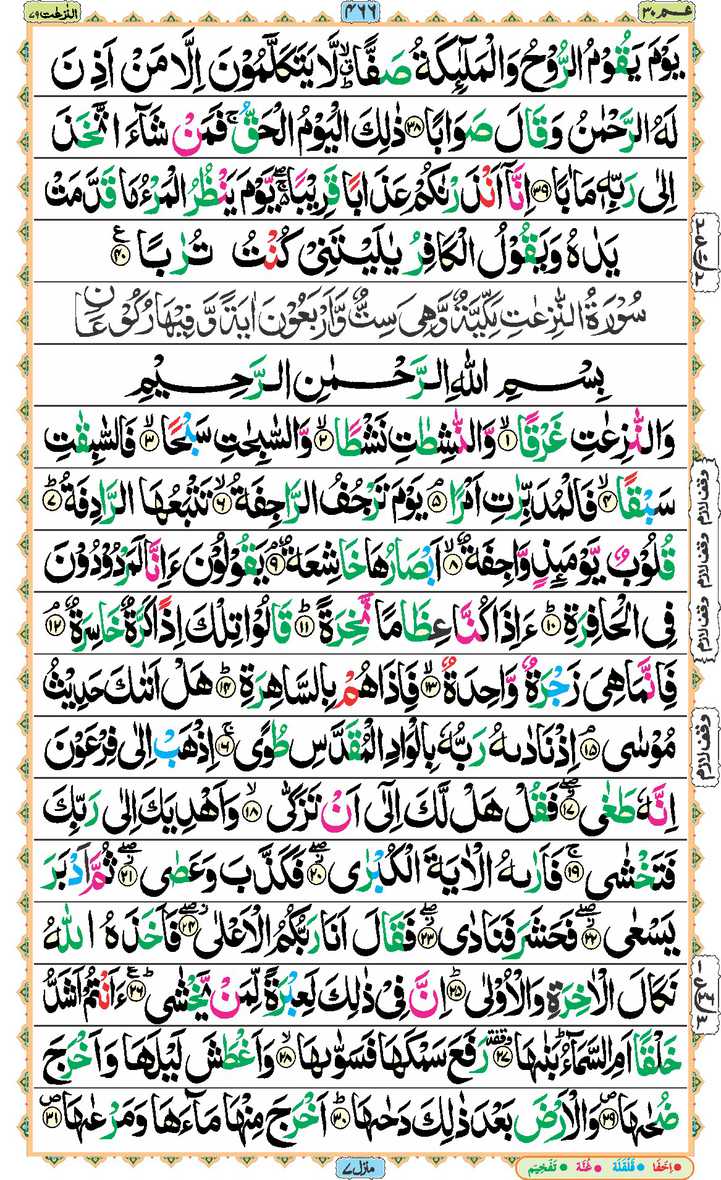 عـم ٣٠
٤٦٦
النّٰزعٰت ٧٩
يَوْمَ يَقُوْمُ الرُّوْحُ وَالْمَلٰٓئِكَةُ صَفًّا ۙؕ لَّا يَتَكَلَّمُوْنَ اِلَّا مَنْ اَذِنَ
لَهُ الرَّحْمٰنُ وَقَالَ صَوَابًا ﴿٣٨﴾ ذٰلِكَ الْيَوْمُ الْحَقُّ ۚ فَمَنْ شَآءَ اتَّخَذَ
اِلٰى رَبِّهٖ مَاٰبًا ﴿٣٩﴾ اِنَّآ اَنْذَرْنٰكُمْ عَذَابًا قَرِيْبًا ۚۖ يَّوْمَ يَنْظُرُ الْمَرْءُ مَا قَدَّمَتْ
يَدٰهُ وَيَقُوْلُ الْكٰفِرُ يٰلَيْتَنِيْ كُنْتُ تُرٰبًا ﴿٤٠﴾ ع
سُوْرَةُ النّٰزِعٰتِ مَكِّيَّةٌ وَّهِيَ سِتٌّ وَّاَرْبَعُوْنَ اٰيَةً وَّفِيْهَا رُكُوْعَانِ
بِسْمِ اللّٰهِ الرَّحْمٰنِ الرَّحِيْمِ
وَالنّٰزِعٰتِ غَرْقًا ۙ﴿١﴾ وَّالنّٰشِطٰتِ نَشْطًا ۙ﴿٢﴾ وَّالسّٰبِحٰتِ سَبْحًا ۙ﴿٣﴾ فَالسّٰبِقٰتِ
سَبْقًا ۙ﴿٤﴾ فَالْمُدَبِّرٰتِ اَمْرًا ۘ﴿٥﴾ يَوْمَ تَرْجُفُ الرَّاجِفَةُ ۙ﴿٦﴾ تَتْبَعُهَا الرَّادِفَةُ ؕ﴿٧﴾
قُلُوْبٌ يَّوْمَئِذٍ وَّاجِفَةٌ ۙ﴿٨﴾ اَبْصَارُهَا خَاشِعَةٌ ۘ﴿٩﴾ يَقُوْلُوْنَ ءَاِنَّا لَمَرْدُوْدُوْنَ
فِى الْحَافِرَةِ ؕ﴿١٠﴾ ءَاِذَا كُنَّا عِظَامًا نَّخِرَةً ؕ﴿١١﴾ قَالُوْا تِلْكَ اِذًا كَرَّةٌ خَاسِرَةٌ ۘ﴿١٢﴾
فَاِنَّمَا هِيَ زَجْرَةٌ وَّاحِدَةٌ ۙ﴿١٣﴾ فَاِذَا هُمْ بِالسَّاهِرَةِ ؕ﴿١٤﴾ هَلْ اَتٰىكَ حَدِيْثُ
مُوْسٰى ۘ﴿١٥﴾ اِذْ نَادٰىهُ رَبُّهٗ بِالْوَادِ الْمُقَدَّسِ طُوًى ۚ﴿١٦﴾ اِذْهَبْ اِلٰى فِرْعَوْنَ
اِنَّهٗ طَغٰى ۖ﴿١٧﴾ فَقُلْ هَلْ لَّكَ اِلٰٓى اَنْ تَزَكّٰى ۙ﴿١٨﴾ وَاَهْدِيَكَ اِلٰى رَبِّكَ
فَتَخْشٰى ۚ﴿١٩﴾ فَاَرٰىهُ الْاٰيَةَ الْكُبْرٰى ۖ﴿٢٠﴾ فَكَذَّبَ وَعَصٰى ۖ﴿٢١﴾ ثُمَّ اَدْبَرَ
يَسْعٰى ۖ﴿٢٢﴾ فَحَشَرَ فَنَادٰى ۖ﴿٢٣﴾ فَقَالَ اَنَا رَبُّكُمُ الْاَعْلٰى ۖ﴿٢٤﴾ فَاَخَذَهُ اللّٰهُ
نَكَالَ الْاٰخِرَةِ وَالْاُوْلٰى ؕ﴿٢٥﴾ اِنَّ فِيْ ذٰلِكَ لَعِبْرَةً لِّمَنْ يَّخْشٰى ؕ﴿٢٦﴾ ءَاَنْتُمْ اَشَدُّ
خَلْقًا اَمِ السَّمَآءُ ؕ بَنٰىهَا ﴿٢٧﴾ وقفة رَفَعَ سَمْكَهَا فَسَوّٰىهَا ۙ﴿٢٨﴾ وَاَغْطَشَ لَيْلَهَا وَاَخْرَجَ
ضُحٰىهَا ۪﴿٢٩﴾ وَالْاَرْضَ بَعْدَ ذٰلِكَ دَحٰىهَا ؕ﴿٣٠﴾ اَخْرَجَ مِنْهَا مَآءَهَا وَمَرْعٰىهَا ۪﴿٣١﴾
وقف لازم
وقف لازم
وقف لازم
وقف لازم
منزل ٧
• اِخفَا • قَلقَلَة • غُنَّة • تَفْخِيْم